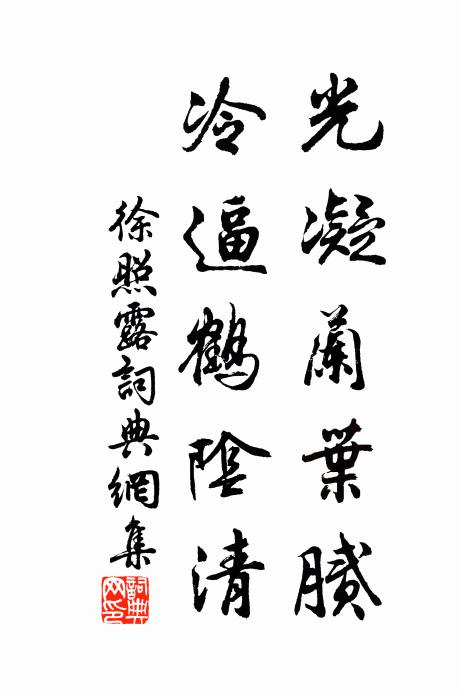 光凝蘭葉膩
冷逼鶴陰清
徐照露詞典網集
詞典
网印